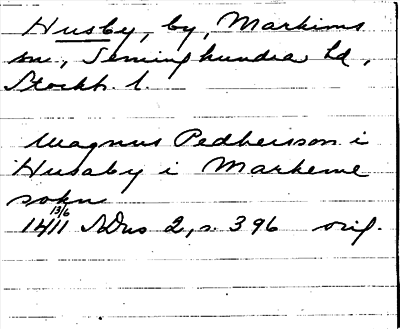 Husby, by, Markims
sn., Seminghundra hd,
Stockh. l.
Magnus Pedhersson i
Husaby i Markeme
sokn
13/6
1411 SDns 2, s. 396 orig.